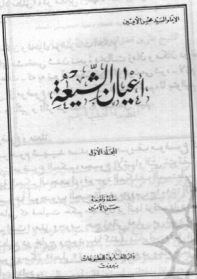 الإمام السيد محسن الأمين
أعيان الشيعة
المجلد الأول
حققه وأخرجه
حسن الأمين
دار التعارف للمطبوعات
بيروت